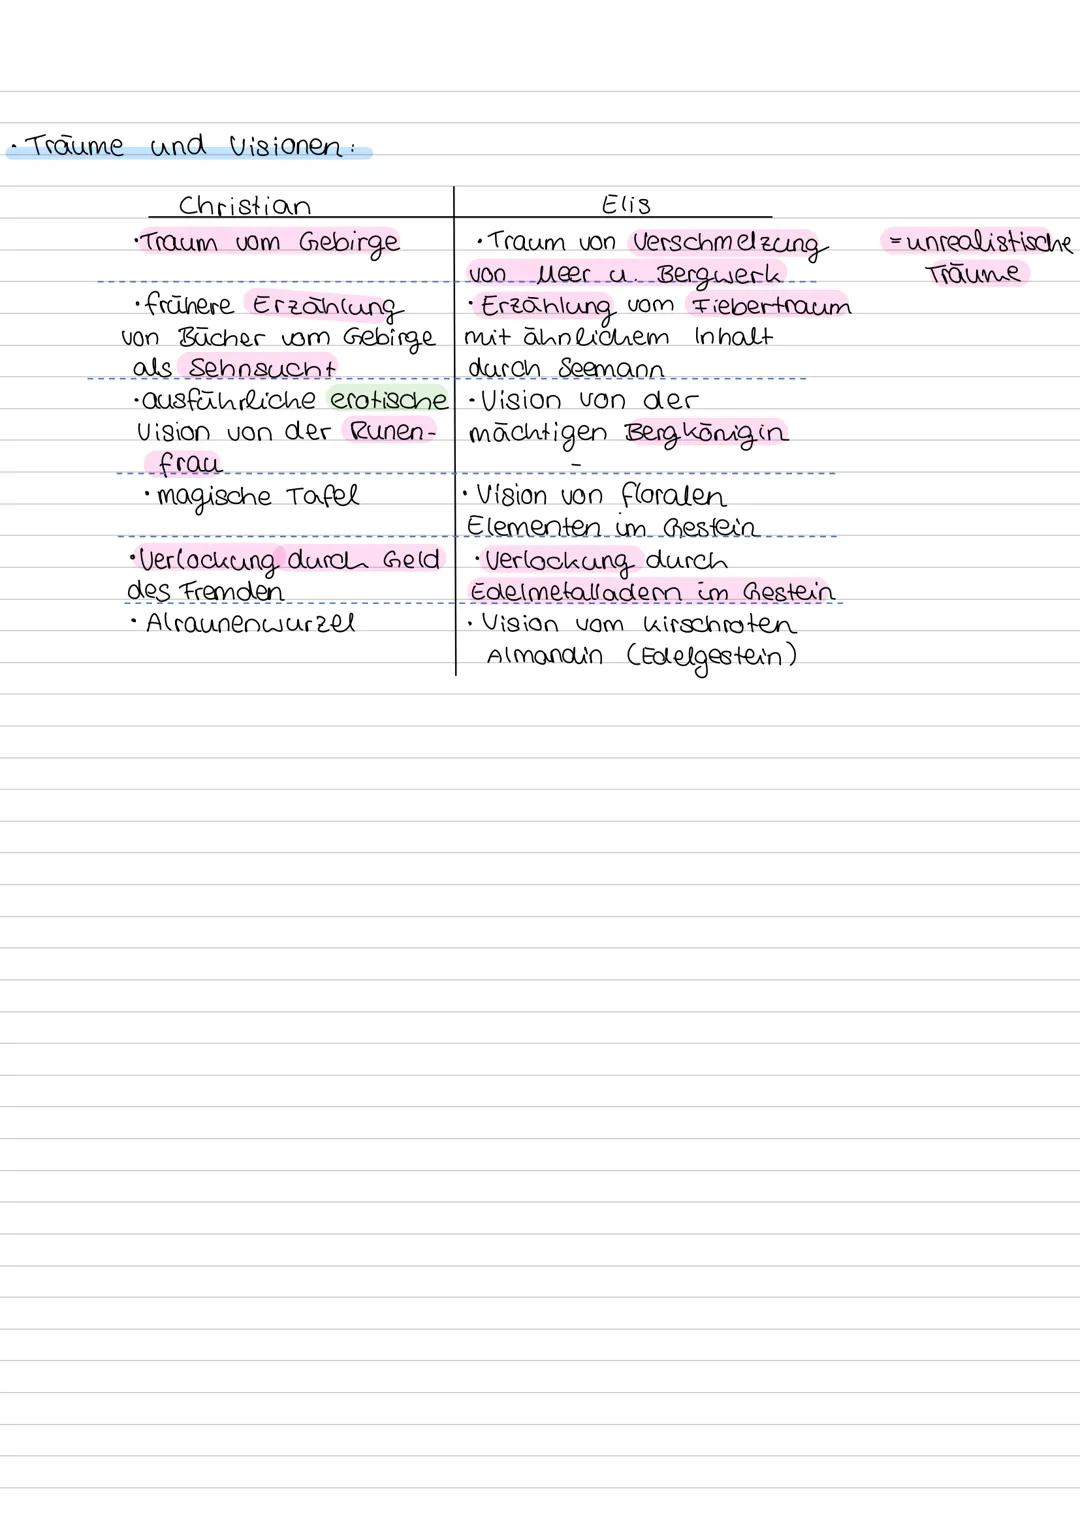 · Träume und Visionen:
Christian
Elis
·Traum vom Gebirge
·Traum von Verschmelzung
von Meer u. Bergwerk
= unrealistische
Träume
·frühere Erzählung
von Bücher vom Gebirge
als Sehnsucht
·Erzählung vom Fiebertraum
mit ähnlichem Inhalt
durch Seemann
·ausführliche erotische
Vision von der Runen-
frau
·Vision von der
mächtigen Bergkönigin
-
·magische Tafel
·Vision von floralen
Elementen im Gestein
·Verlockung durch Geld
des Fremden
·Verlockung durch
Edelmetalladern im Gestein
·Alraunenwurzel
·Vision vom kirschroten
Almandin (Edelgestein)